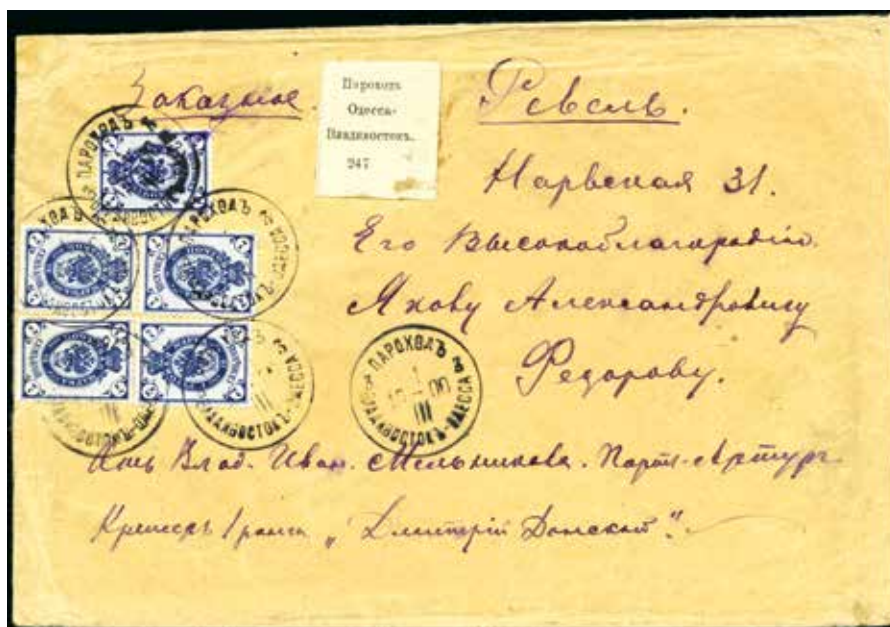 Заказное.
Пароходъ
Одесса-
Владивостокъ.
247
Ревель.
Нарвская 31.
Его Высокоблагородію
Якову Александровичу
Федорову.
ПАРОХОДЪ
ВЛАДИВОСТОКЪ-ОДЕССА
Отъ Влад. Иван. Мельникова. Портъ-Артуръ.
Крейсеръ I ранга „Дмитрій Донской".